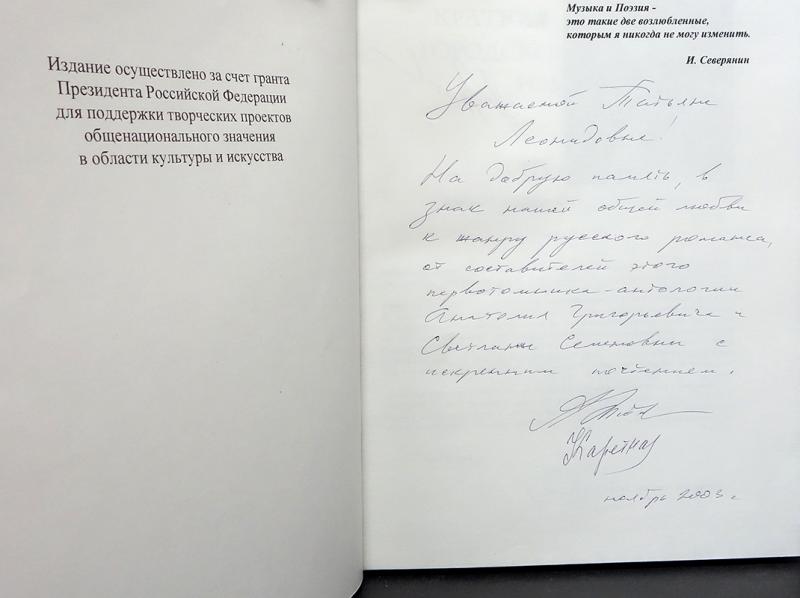 Издание осуществлено за счет гранта
Президента Российской Федерации
для поддержки творческих проектов
общенационального значения
в области культуры и искусства
Музыка и Поэзия -
это такие две возлюбленные,
которым я никогда не могу изменить.
И. Северянин
Уважаемой Татьяне
Леонидовне!
На добрую память, в
знак нашей общей любви
к жанру русского романса,
от составителей этого
первотомника-антологии
Анатолия Григорьевича и
Светланы Семеновны с
искренним почтением.
ноябрь 2003 г.